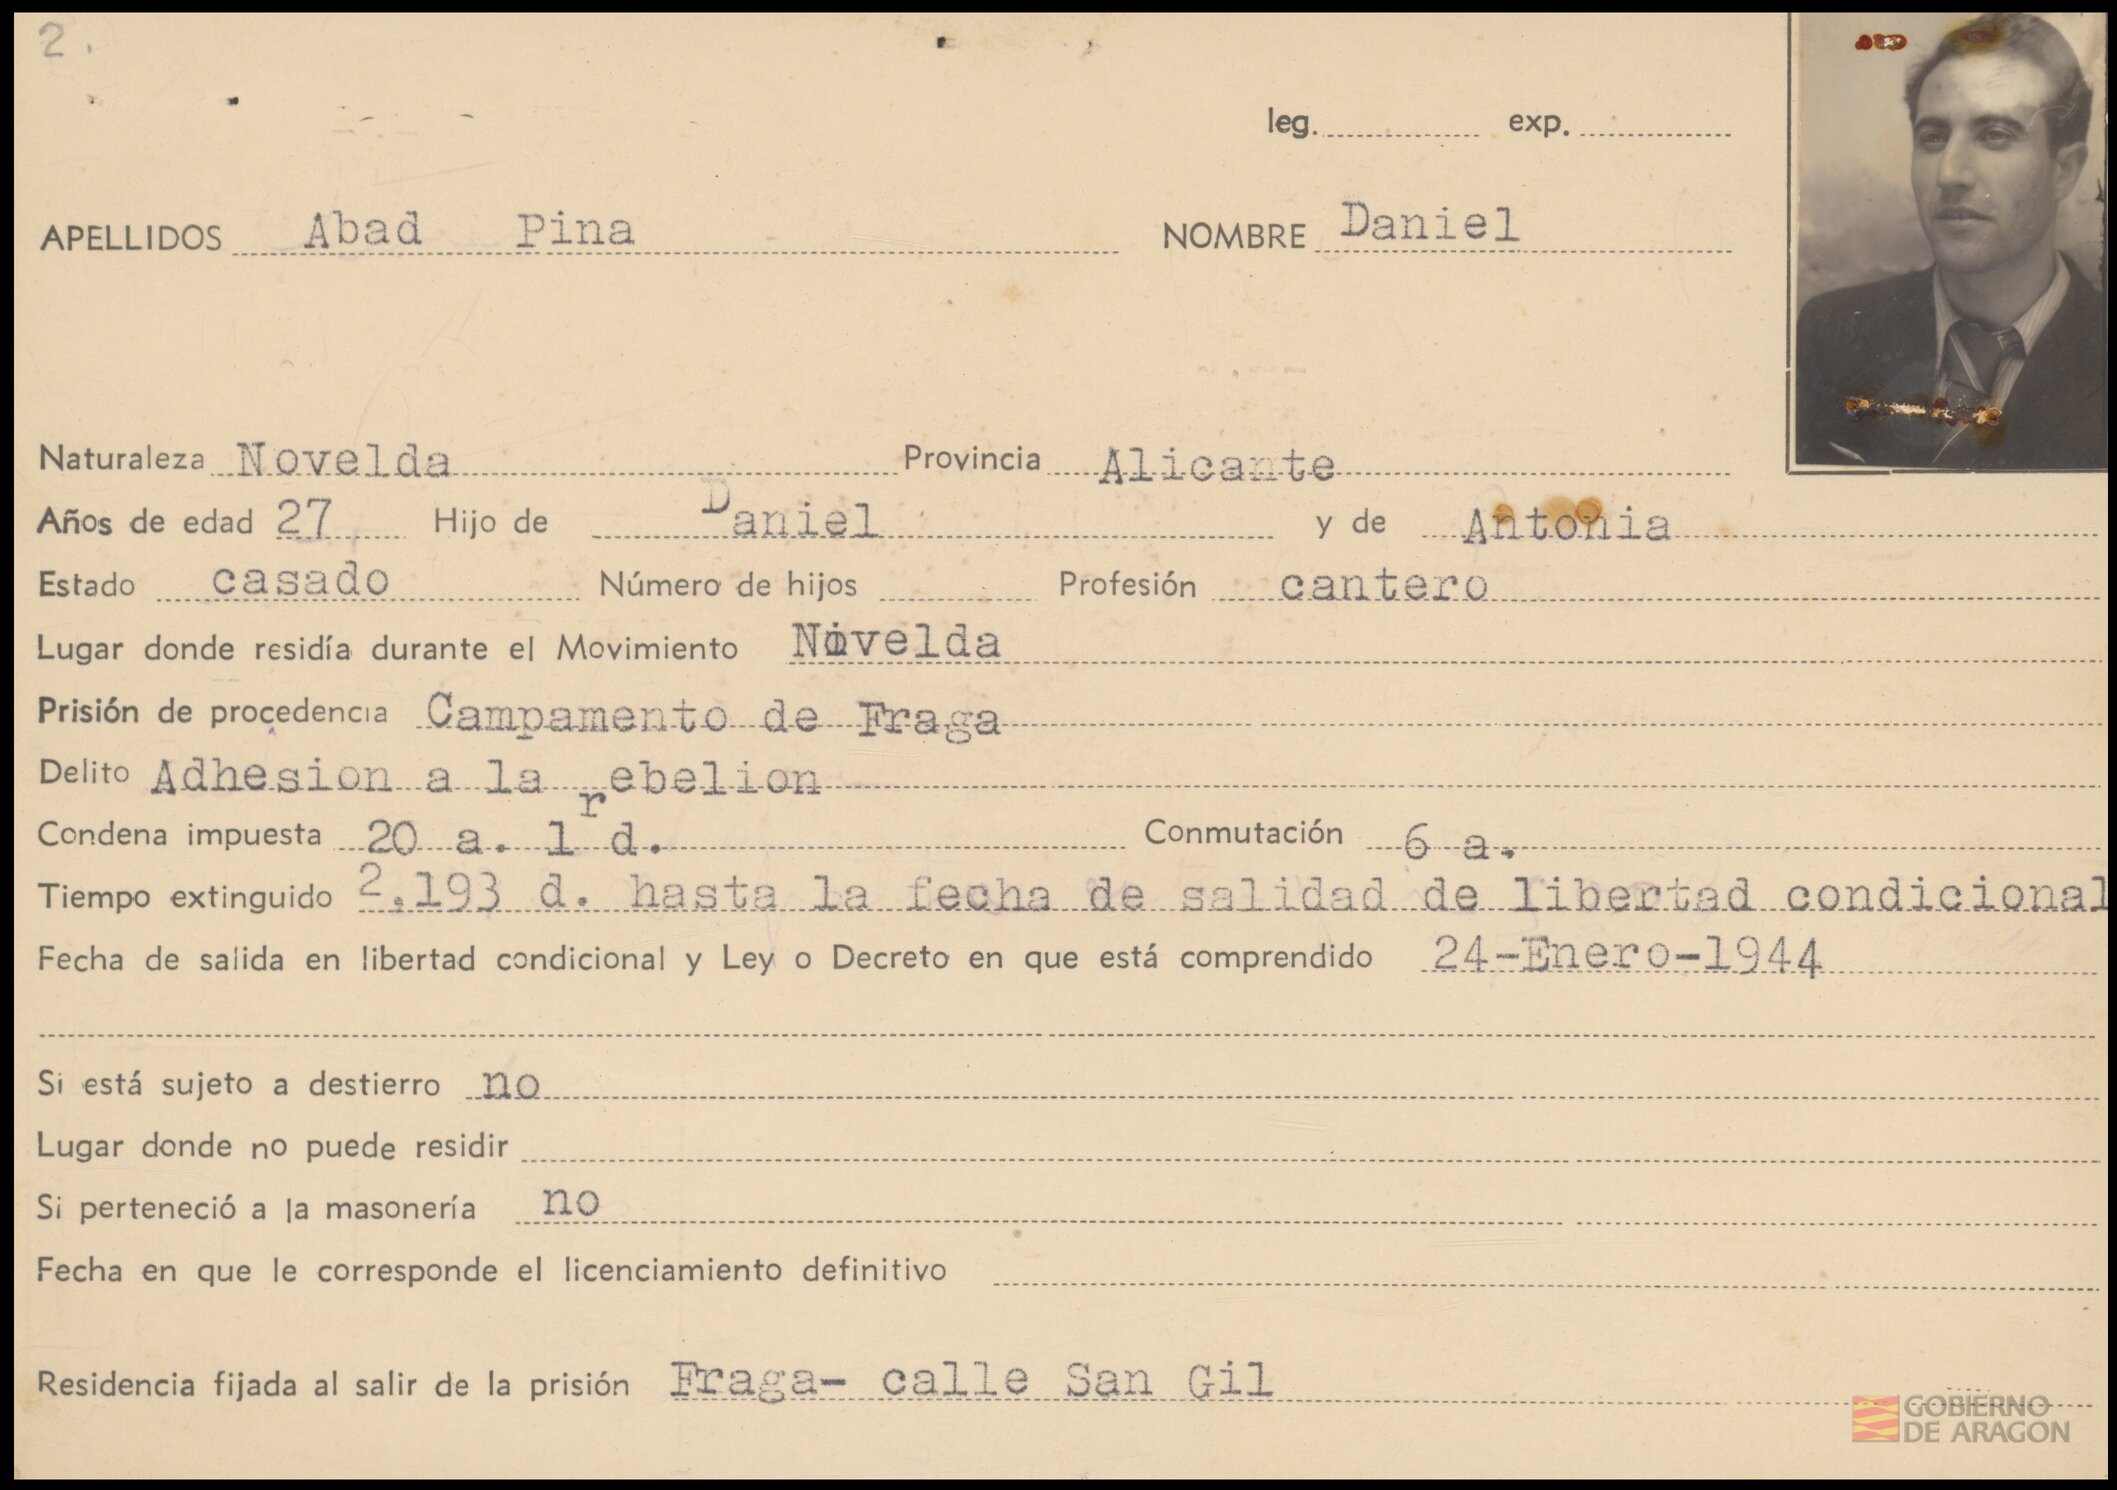 2.
leg. exp.
APELLIDOS Abad Pina NOMBRE Daniel
Naturaleza Novelda Provincia Alicante
Años de edad 27 Hijo de Daniel y de Antonia
Estado casado Número de hijos Profesión cantero
Lugar donde residía durante el Movimiento Novelda
Prisión de procedencia Campamento de Fraga
Delito Adhesion a la rebelion
Condena impuesta 20 a. 1 d. Conmutación 6 a.
Tiempo extinguido 2.193 d. hasta la fecha de salidad de libertad condicional
Fecha de salida en libertad condicional y Ley o Decreto en que está comprendido 24-Enero-1944
Si está sujeto a destierro no
Lugar donde no puede residir
Si perteneció a la masonería no
Fecha en que le corresponde el licenciamiento definitivo
Residencia fijada al salir de la prisión Fraga- calle San Gil
GOBIERNO
DE ARAGON